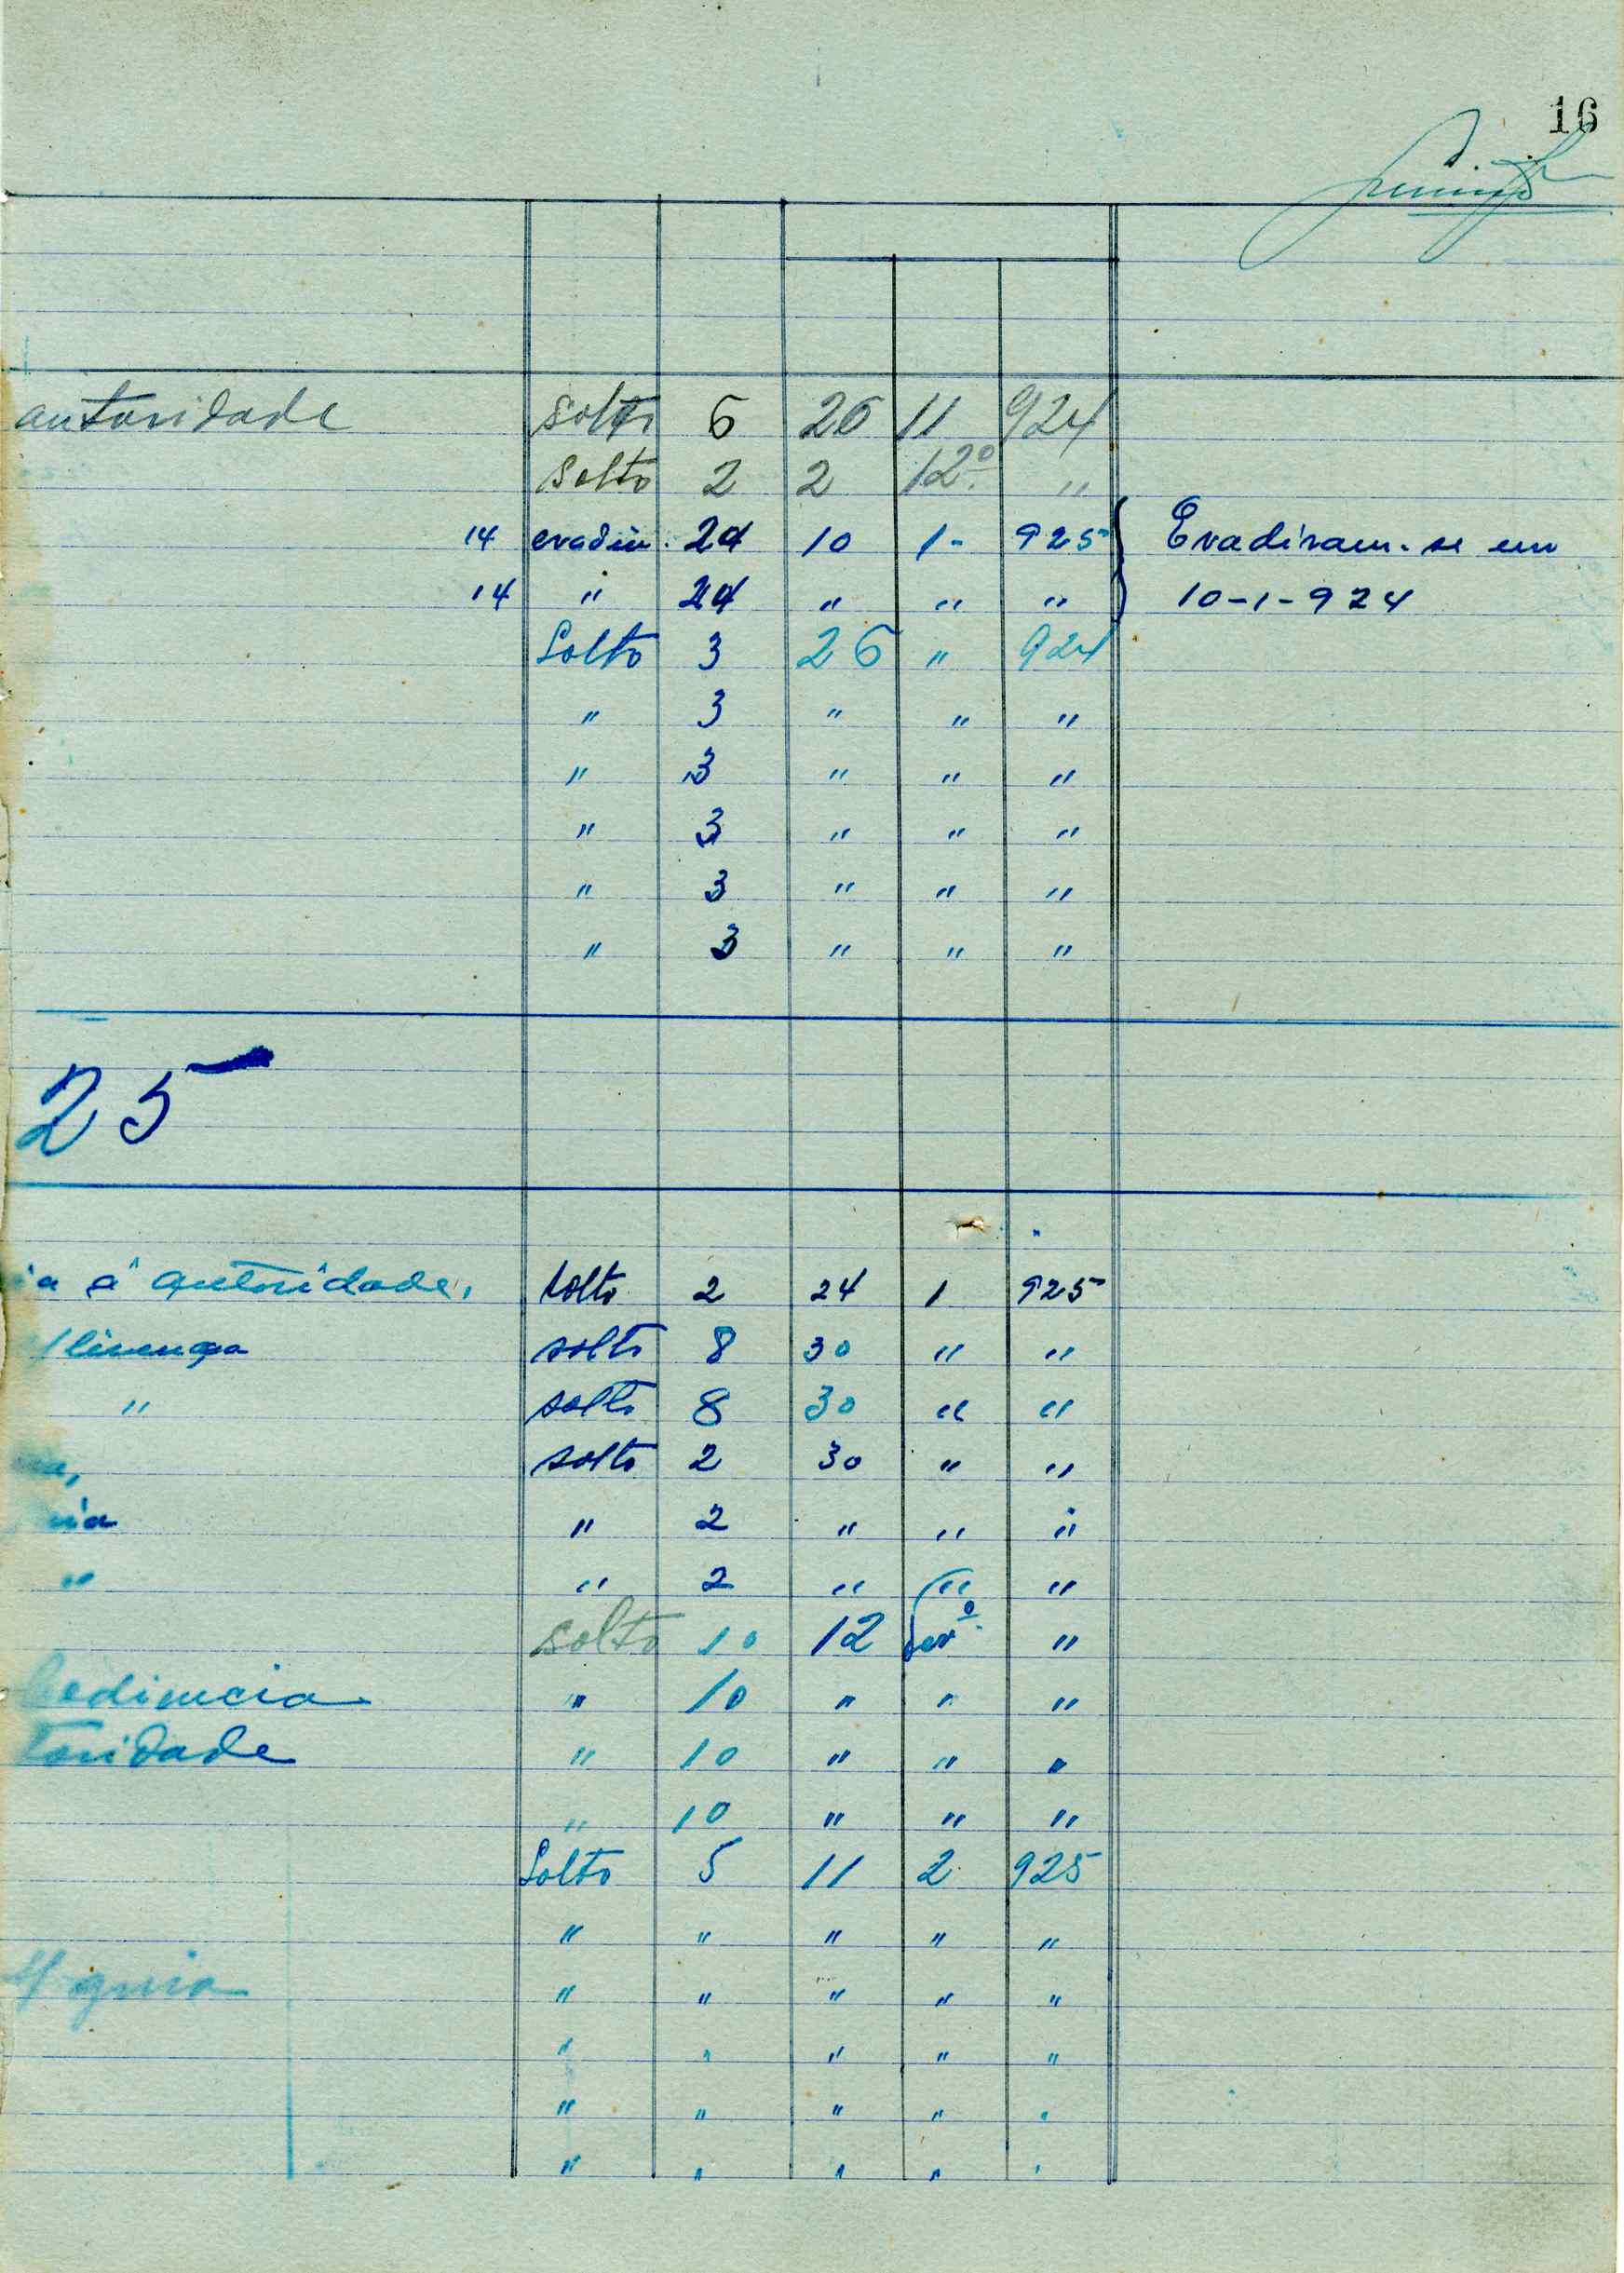 16
autoridade solto 6 26 11 924
solto 2 2 12º "
14 evadiu. 24 10 1- 925 Evadiram-se em
14 " 24 " " " 10-1-924
Solto 3 26 " 924
" 3 " " "
" 3 " " "
" 3 " " "
" 3 " " "
" 3 " " "
25
à autoridade, solto 2 24 1 925
licença solto 8 30 " "
" solto 8 30 " "
solto 2 30 " "
" 2 " " "
" " 2 " " "
solto 10 12 fevº "
bediencia " 10 " " "
toridade " 10 " " "
" 10 " " "
Solto 5 11 2 925
" " " " "
guia " " " " "
" " " " "
" " " " "
" " " " "